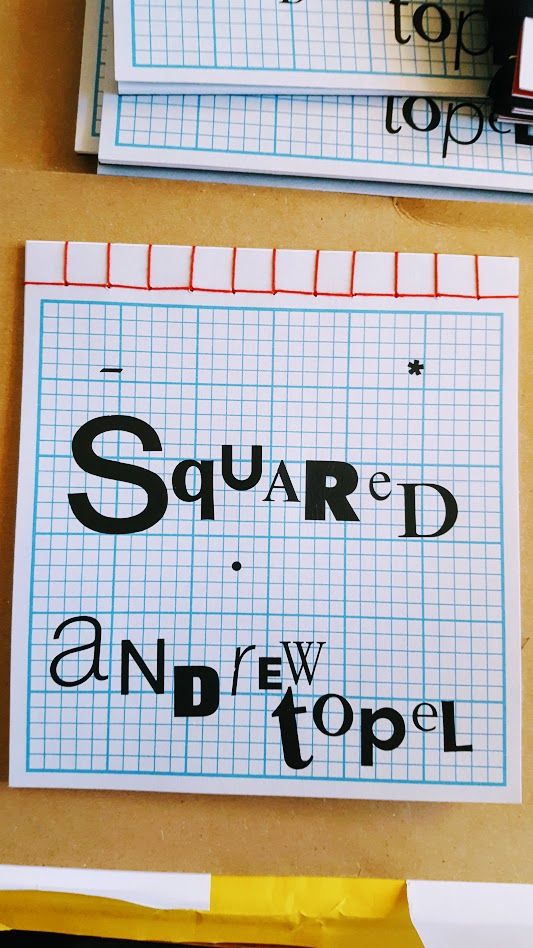 top
topeL
– *
SqUAReD
.
aNDrEW
topeL